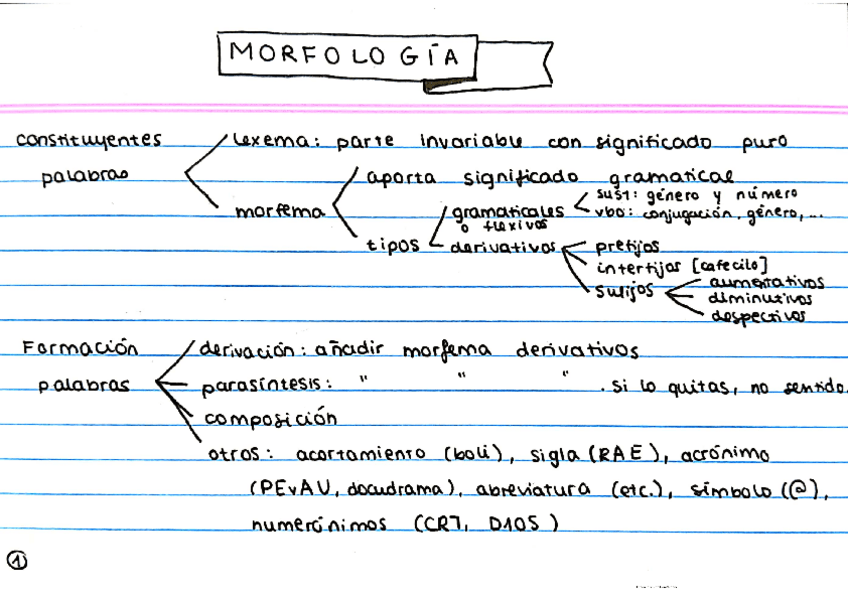 MORFOLOGÍA
constituyentes
palabras
lexema: parte invariable con significado puro
morfema
aporta significado gramatical
tipos
gramaticales
o flexivos
sust: género y número
vbo: conjugación, género,...
derivativos
prefijos
interfijos [cafecito]
sufijos
aumentativos
diminutivos
despectivos
Formación
palabras
derivación: añadir morfema derivativos
parasíntesis: " " " . si lo quitas, no sentido.
composición
otros: acortamiento (boli), sigla (RAE), acrónimo
(PEvAU, docudrama), abreviatura (etc.), símbolo (@),
numerónimos (CR7, D10S)
①